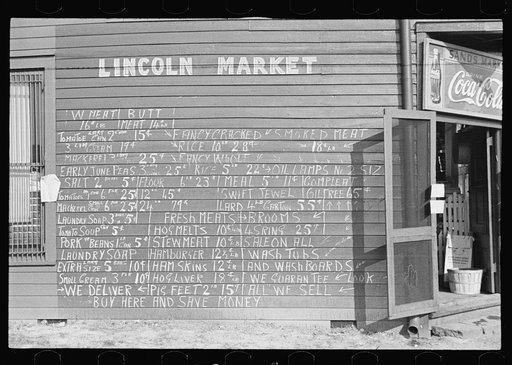 LINCOLN MARKET
SANDS MAR
DRINK
Coca-Cola
WHEAT BUTT
16¢ LB MEAT 14¢ LB
TOMATOE CAN 2 15¢ FANCY CRACKED SMOKED MEAT
3 CREAM 19¢ RICE 10 28¢ 18¢ LB
MACKEREL 25¢ FANCY WHOLE
EARLY JUNE PEAS 3 25¢ RICE 5 22¢ OIL LAMPS NO 2 SIZ
SALT 2 5¢ FLOUR 6 23¢ MEAL 5 11¢ COMPLEAT
TOMATOES 6 25¢ 12 45¢ SWIFT JEWEL OIL FREE 65¢
MACKEREL 6 25¢ 24 79¢ LARD 4 LB CARTON 55¢
LAUNDRY SOAP 3 FOR 5¢ FRESH MEATS BROOMS
TOMATO SOUP 5¢ HOG MELTS 10¢ LB 4 STRING 25¢
PORK BEANS 1 LB CAN 5¢ STEW MEAT 10¢ LB SALE ON ALL
LAUNDRY SOAP HAMBURGER 12½ LB WASH TUBS
EXTRA LARGE SIZE 5¢ HAM SKINS 12½ LB AND WASH BOARDS
SMALL CREAM 3 FOR 10¢ HOG LIVER 18¢ LB WE GUARANTEE LOOK
WE DELIVER PIG FEET 2 LB 15¢ ALL WE SELL
BUY HERE AND SAVE MONEY